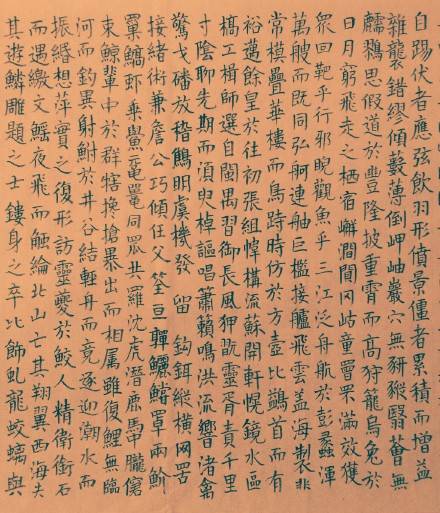 自踢伏者應弦飲羽形僨景僵者累積而增益
雜襲錯繆傾藪薄倒岬岫巖穴無豜豵翳薈無
麡鷚思假道於豐隆披重霄而高狩籠烏兔於
日月窮飛走之栖宿嶰澗閴岡岵童罾罘滿效獲
眾回靶乎行邪睨觀魚乎三江泛舟航於彭蠡渾
萬艘而既同弘舸連舳巨檻接艫飛雲蓋海製非
常模疊華樓而島跱時仿於方壺比鷁首而有
裕邁餘皇於往初張組幃構流蘇開軒幌鏡水區
槁工楫師選自閩禺習御長風狎翫靈胥責千里
寸陰聊先期而須臾棹謳唱簫籟鳴洪流響渚禽
驚弋磻放稽鷦明虞機發留 鈎鉺縱橫網罟
接緒術兼詹公巧傾任父筌亘鱺鱨罩兩魪
罺鰝鰕乘鱟黿鼉同罛共羅沈虎潛鹿馽龓僒
束鯨輩中於群犗攙搶暴出而相属雖復鯉無臨
河而釣異射鮒於井谷結輕舟而竞逐迎潮水而
振緡想萍實之復形訪靈夔於鮫人精衛銜石
而遇繳文鰩夜飛而觸綸北山亡其翔翼西海失
其遊鱗雕題之士鏤身之卒比飾虬龍蛟螭與